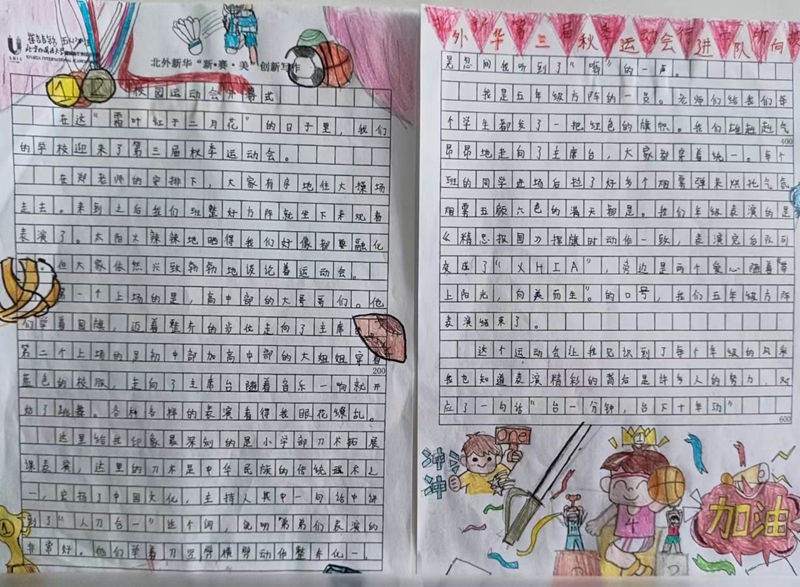 北外新华“新·赛·美”创新写作
校园运动会开幕式
在这“霜叶红于二月花”的日子里，我们
的学校迎来了第三届秋季运动会。
在郑老师的安排下，大家有序地往大操场
走去。来到之后我们班整好方阵就坐下来观看
表演了。太阳火辣辣地晒得我们好像都要融化
但大家依然兴致勃勃地谈论着运动会。
第一个上场的是，高中部的大哥哥们。他
们举着国旗，迈着整齐的步伐走向了主席
第二个上场的是初中部加高中部的大姐姐穿着
蓝色的校服，走向了主席台随着音乐一响就开
始了跳舞。各种各样的表演看得我眼花缭乱。
这里给我印象最深刻的是小学部刀术拓展
课表演，这里的刀术是中华民族的传统
一，
主持人其中一句话中讲
到了“人刀合一”这个词，说明
们表演的
非常好。他们举着刀
动作整齐化一，
200
外 华第三届秋季运动会行进中队
见忽间我听到了“嘭”的一声。
我是五年级方阵的一员。老师们给我们每
个学生都发了一把红色的旗帜。我们雄赳赳气
昂昂地走向了主席台，大家都穿着统一。每个
班的同学进场后拉了好多个烟雾弹来烘托气氛
烟雾五颜六色的满天都是。我们年级表演的是
《精忠报国》挥旗时动作一致，表演完后队列
变成了“XHIA”，旁边是两个爱心随着“
上阳光，向美而生”。的口号，我们五年级方阵
表演结束了。
这个运动会让我见识到了每个年级的风采
我也知道表演精彩的背后是许多人的努力，对
应了一句话“台上一分钟，台下十年功”
400
600
冲冲
加油